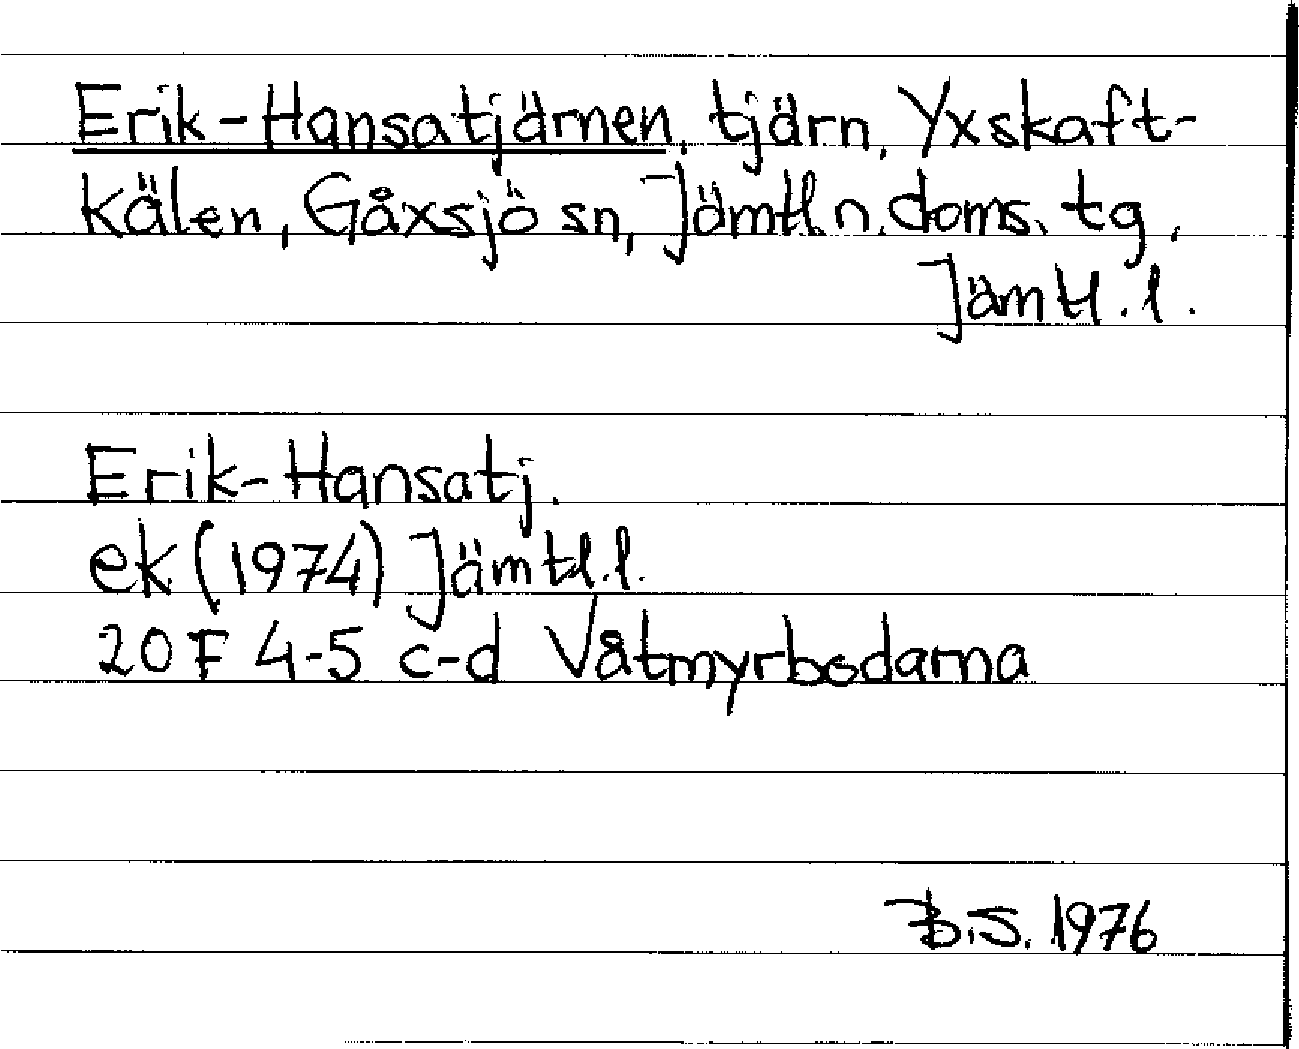 Erik-Hansatjärnen, tjärn, Yxskaft-
kälen, Gåxsjö sn, Jämtl. n. doms. tg,
Jämtl. l.
Erik-Hansatj.
ek (1974) Jämtl. l.
20 F 4-5 c-d Våtmyrbodarna
B.S. 1976